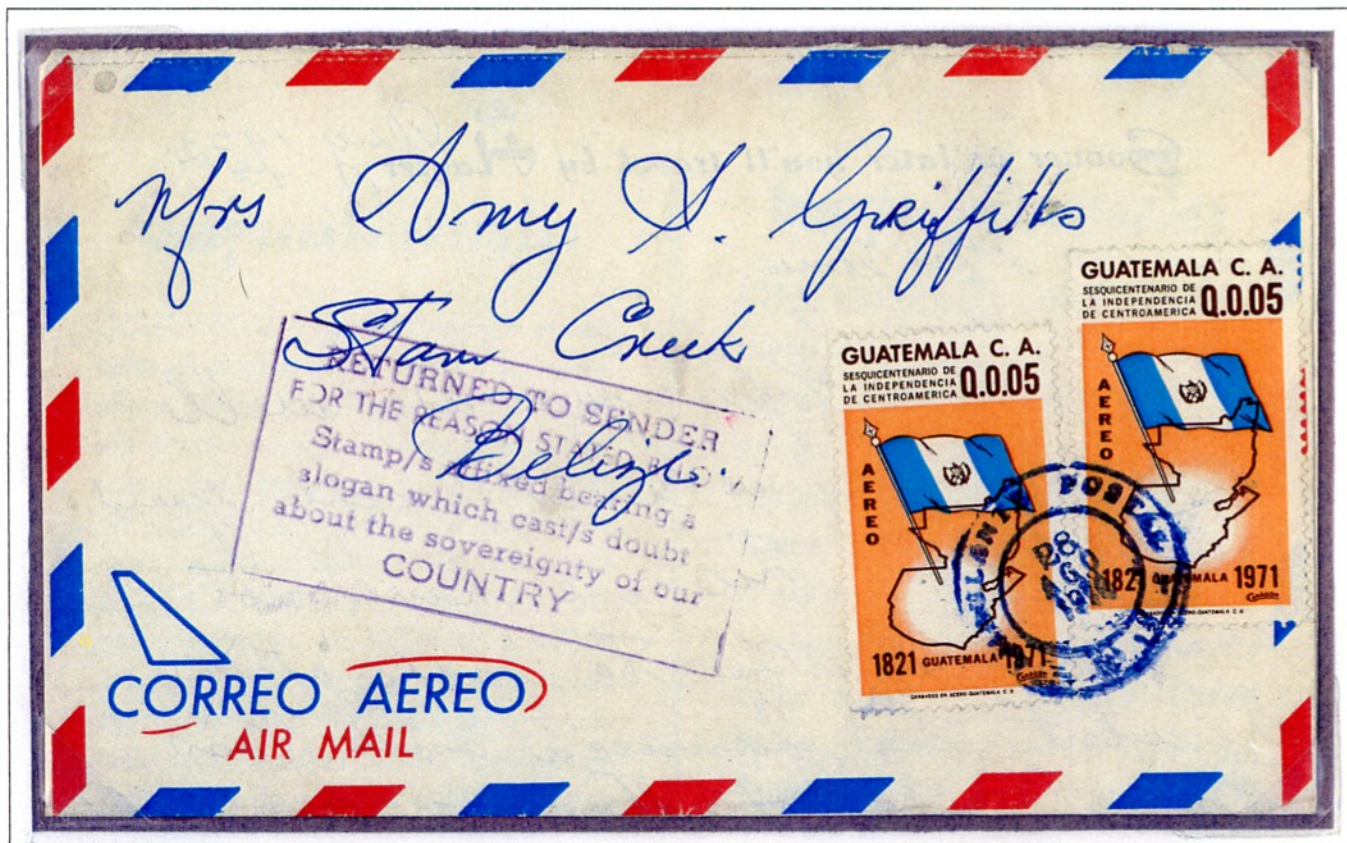 Mrs Amy S. Griffiths
Stann Creek
Belize.
RETURNED TO SENDER
FOR THE REASON STATED BELOW
Stamp/s affixed bearing a
slogan which cast/s doubt
about the sovereignty of our
COUNTRY
GUATEMALA C. A.
SESQUICENTENARIO DE
LA INDEPENDENCIA
DE CENTROAMERICA
Q.0.05
AEREO
1821 GUATEMALA 1971
GRABADOS EN ACERO-GUATEMALA C. A.
GUATEMALA C. A.
SESQUICENTENARIO DE
LA INDEPENDENCIA
DE CENTROAMERICA
Q.0.05
AEREO
1821 GUATEMALA 1971
GRABADOS EN ACERO-GUATEMALA C. A.
28
AGO
CORREO AEREO
AIR MAIL